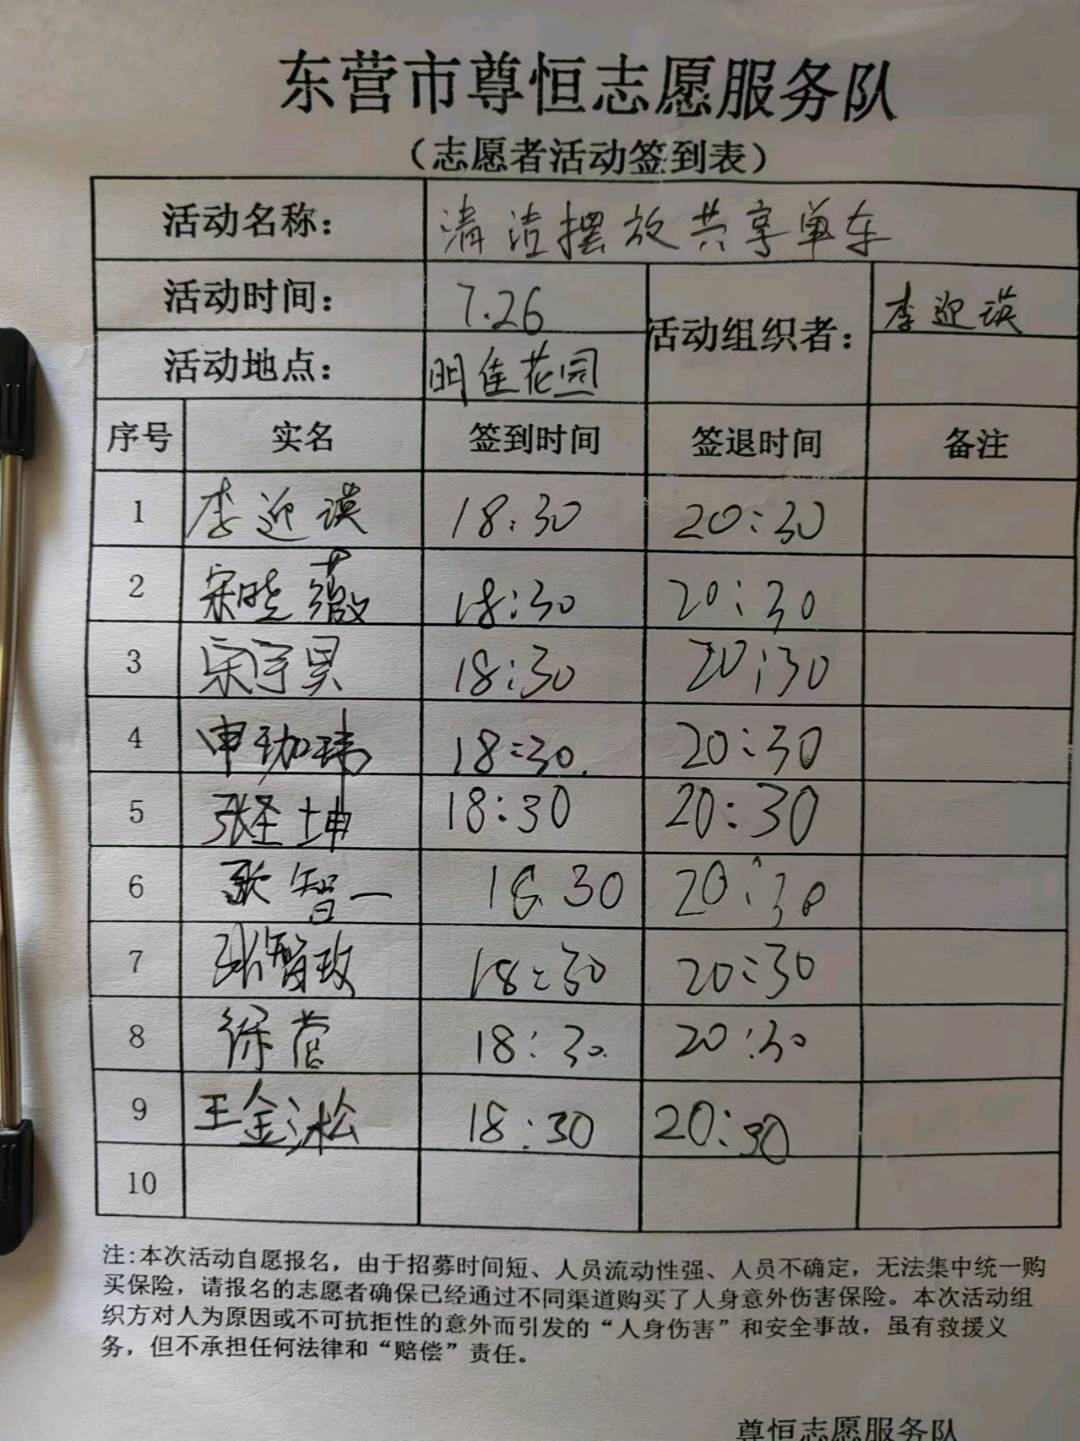 东营市尊恒志愿服务队
（志愿者活动签到表）
活动名称： 清洁摆放共享单车
活动时间： 7.26 活动组织者： 李迎瑛
活动地点： 明佳花园
序号 实名 签到时间 签退时间 备注
1 李迎瑛 18:30 20:30
2 宋晓薇 18:30 20:30
3 宋宇昊 18:30 20:30
4 申珈玮 18:30. 20:30
5 张圣坤 18:30 20:30
6 智一 18.30 20:30
7 张智玫 18:30 20:30
8 徐营 18:30. 20:30
9 王金淞 18:30 20:30
10
注:本次活动自愿报名，由于招募时间短、人员流动性强、人员不确定，无法集中统一购
买保险，请报名的志愿者确保已经通过不同渠道购买了人身意外伤害保险。本次活动组
织方对人为原因或不可抗拒性的意外而引发的“人身伤害”和安全事故，虽有救援义
务，但不承担任何法律和“赔偿”责任。
尊恒志愿服务队